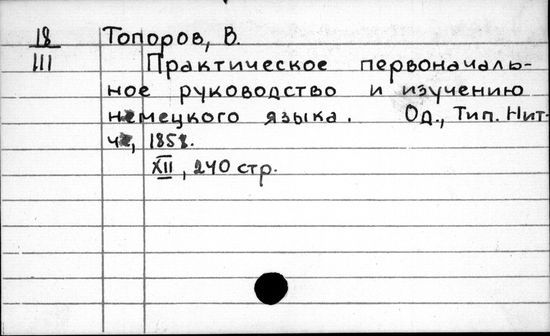 18
III
Топоров, В.
Практическое первоначаль-
ное руководство и изучению
немецкого языка. Од., Тип. Нит-
че, 1858.
XII, 240 стр.